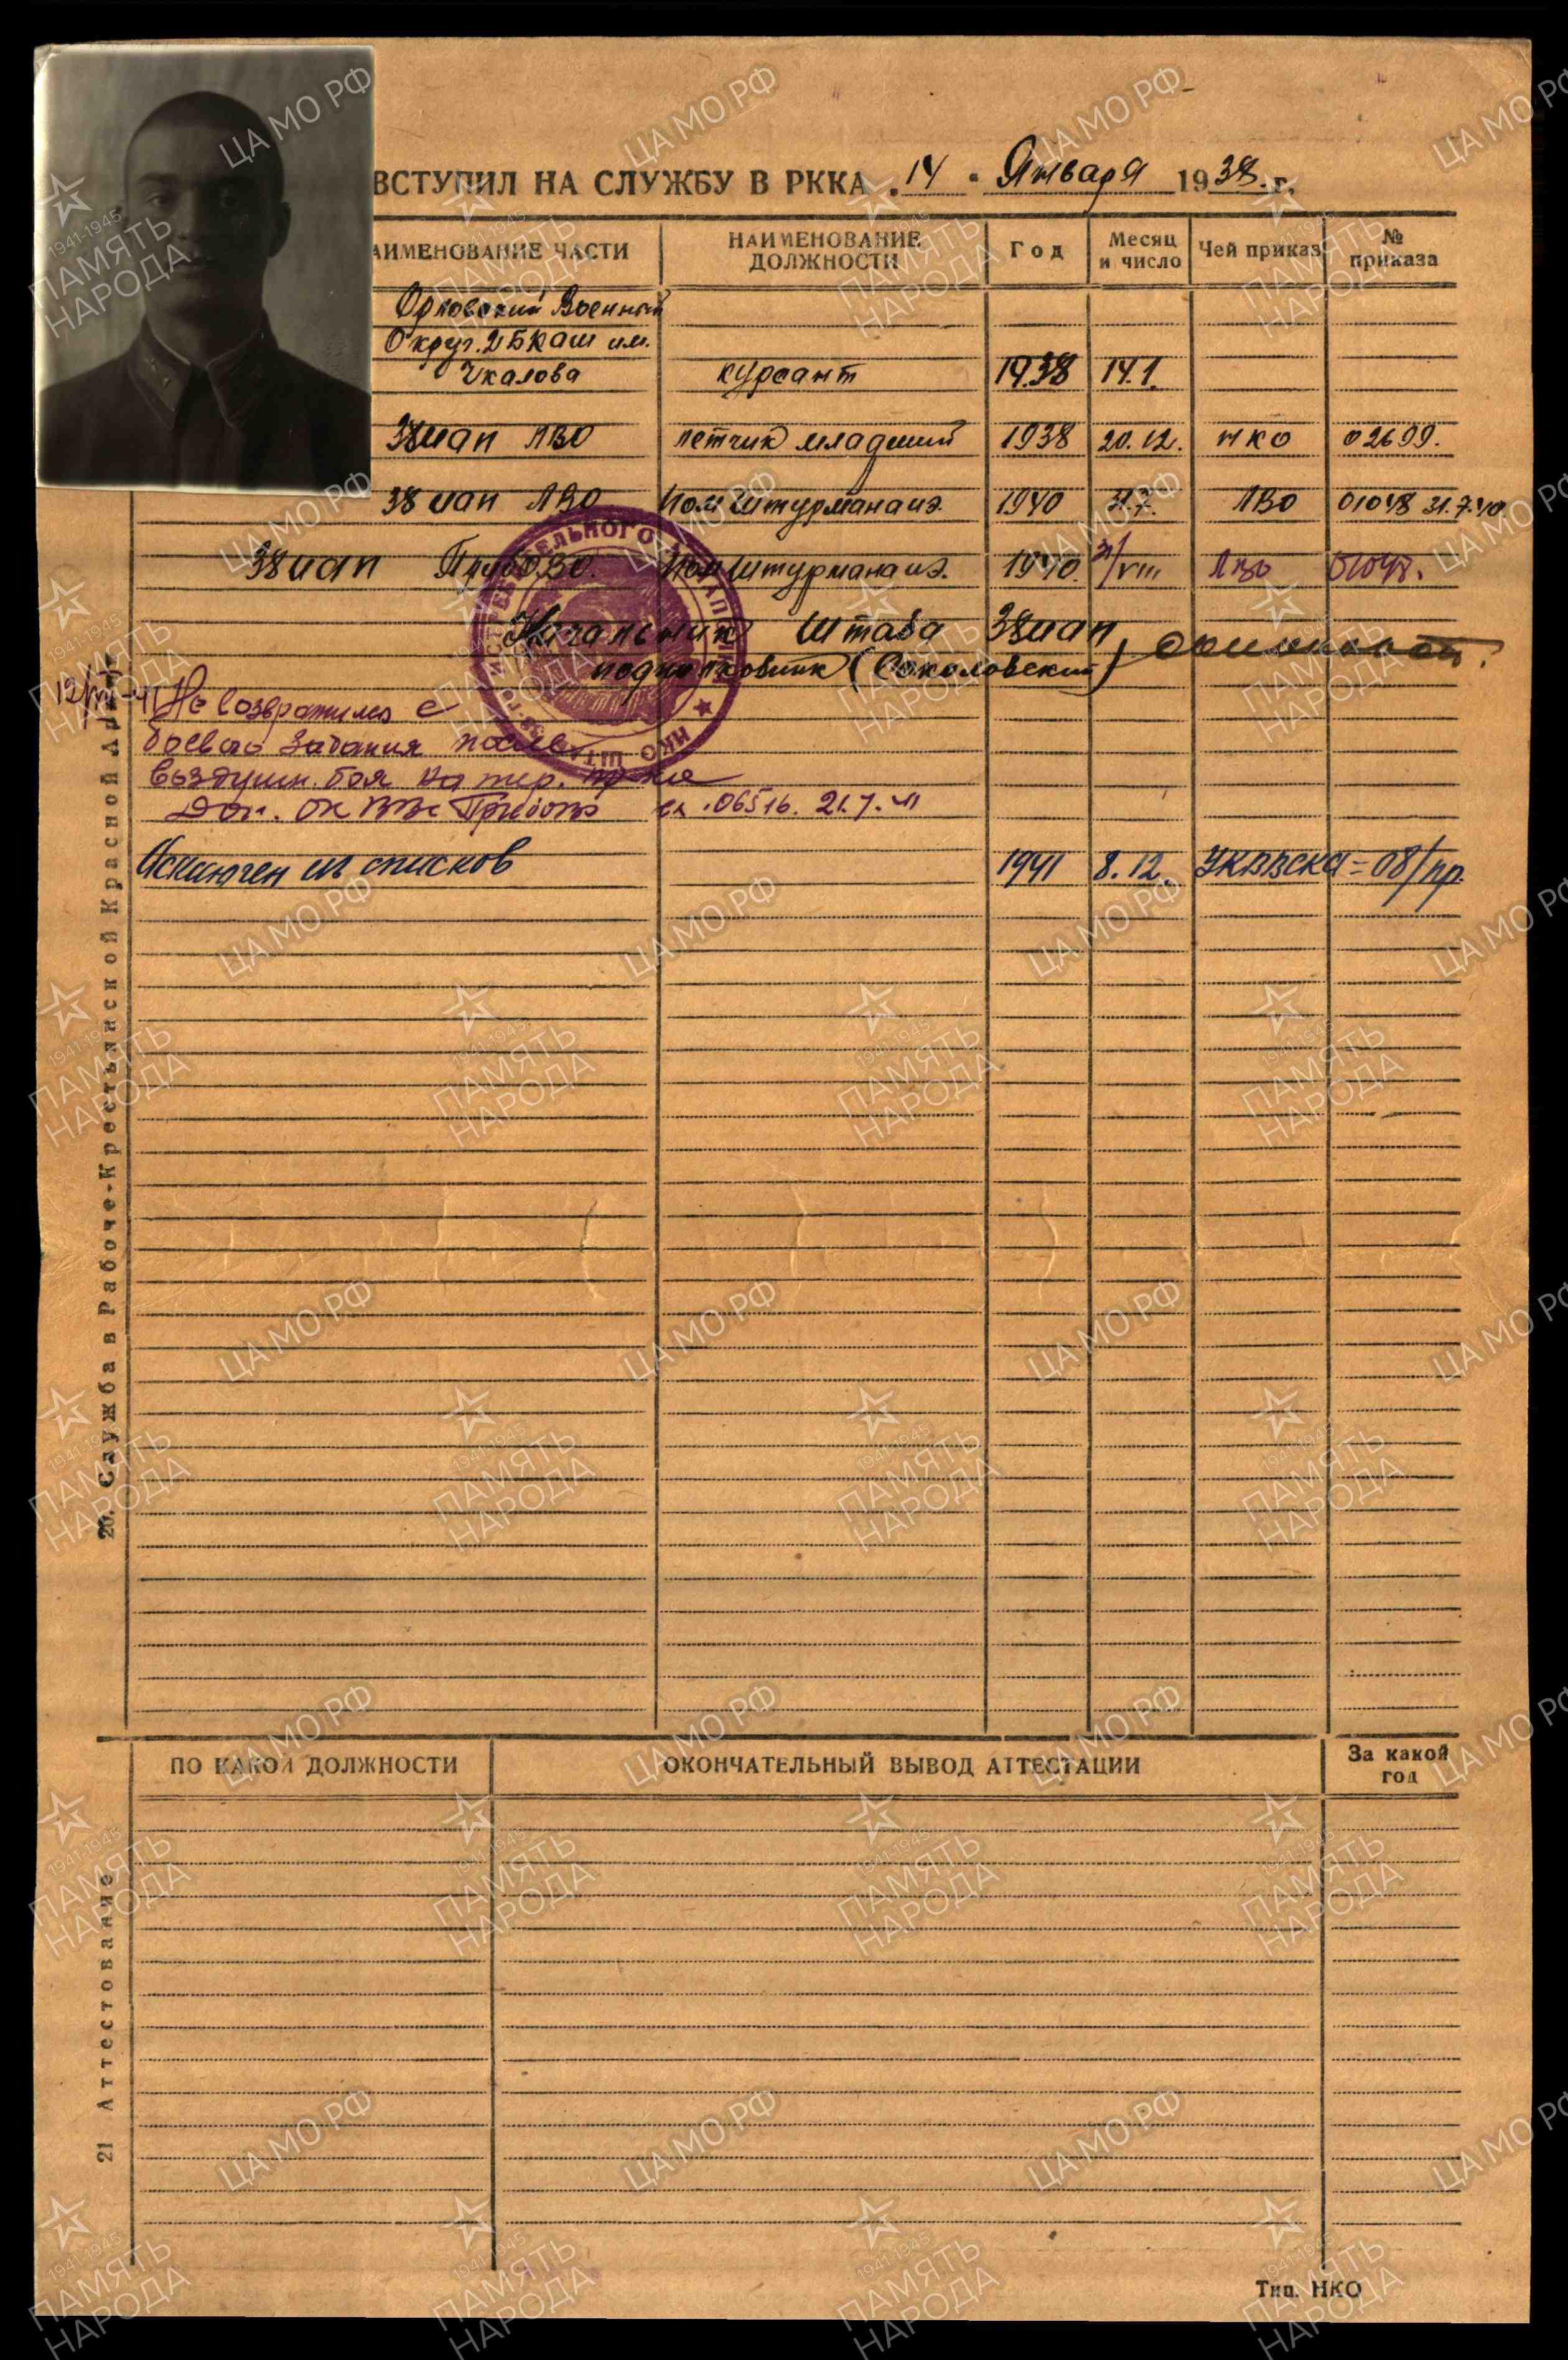 ВСТУПИЛ НА СЛУЖБУ В РККА „ 14 “ Января 1938 г.
АИМЕНОВАНИЕ ЧАСТИ НАИМЕНОВАНИЕ ДОЛЖНОСТИ Год Месяц и число Чей приказ № приказа
Орловский Военный
Округ. 2БКАШ им.
Чкалова курсант 1938 14.1.
38иап ЛВО летчик младший 1938 20.12. НКО 02699.
38иап ЛВО Пом Штурмана иэ. 1940 31.7. ЛВО 01048 31.7.40
38иап ПрибОВО. Пом Штурмана иэ. 1940. 31/VIII ЛВО 01048.
Начальник Штаба 38иап
подполковник (Соколовский)
Не возвратился с
боевого задания после
воздушн. боя на тер. пр-ка
Дон. ОК ВВС Прибово вх. 06516. 21.7.41
Исключен из списков 1941 8.12. УКВВСКА = 08/пр.
20. Служба в Рабоче-Крестьянской Красной Армии
ПО КАКОЙ ДОЛЖНОСТИ ОКОНЧАТЕЛЬНЫЙ ВЫВОД АТТЕСТАЦИИ За какой год
21 Аттестование
Тип. НКО
ЦА МО РФ
1941-1945
ПАМЯТЬ
НАРОДА